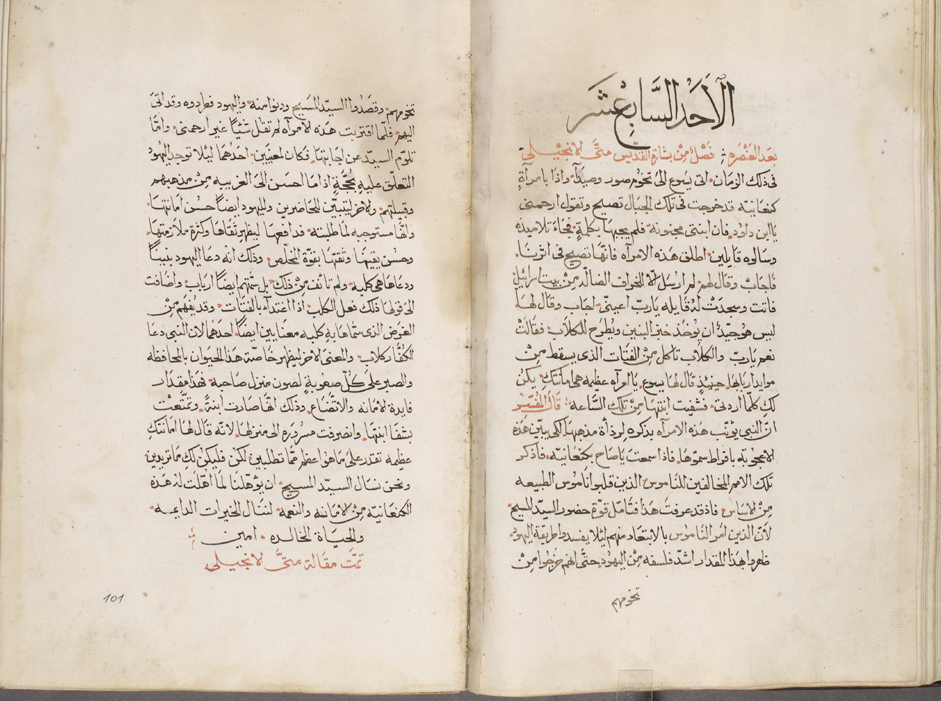 الاحد السابع عشر
بعد العنصرة فصل من بشارة القديس متى الانجيلي
فى ذلك الزمان اتى يسوع الى تخوم صور وصيدا واذا بامرأة
كنعانية قد خرجت فى تلك الجبال تصيح وتقول ارحمنى
ياابن داود فان ابنتى مجنونة فلم يجبها بكلمة فجاء تلاميذه
وسالوه قايلين اطلق هذه الامرأه فانها تصيح فى اثرنا
فاجاب وقال لهم لم ارسل الا للخراف الضالة من بيت اسرائيل
فاتت وسجدت له قايله يارب اعينى اجاب وقال لها
ليس هو جيدًا ان يوخذ خبز البنين ويطرح للكلاب فقالت
نعم يارب والكلاب تاكل من الفتات الذى يسقط من
موايد اربابها حينيذٍ قال لها يسوع ياامرأه عظيمه هى امانتك يكن
لك كلما اردتى فشفيت ابنتها من تلك الساعه قال المفسر
ان النبى يونب هذه الامرأه بذكره لرذأة مذهبها لكى يبين هذه
الاعجوبه بافراط سموها فاذا سمعت ياصاح بكنعانيه فاذكر
تلك الامم المخالفين للناموس الذين قلبوا ناموس الطبيعه
من الاساس فاذ قد عرفت هذا فتأمل قوة حضور السيد المسيح
لأن الذين امر الناموس بالابتعاد منهم ليلا يفسدوا طريقة اليهود
ظهروا بهذا المقدار اشد فلسفه من اليهود حتى انهم خرجوا من
تخومهم
تخومهم وقصدوا السيد المسيح ودنوا منه واليهود فطردوه وقد اتى
اليهم فلما اقتربت هذه الامرأه لم تقل شيًا غير ارحمنى واما
تلوم السيد عن اجابتها فكان لمعنيين احدهما ليلا توجد اليهود
التعلق عليه بحجة اذا ما احسن الى الغريبه من مذهبهم
وقبيلتهم والاخر ليتبين للحاضرين ولليهود ايضًا حسن امانتها
وانها مستوجبه لما طلبته فدافعها ليظهر ثقاها وكثرة ملازمتها
وحسن يقينها وثقتها بقوة المخلص وذلك انه دعا اليهود بنينًا
ودعاها هى كلبه ولم تانف من ذلك بل سمتهم ايضًا ارباب واضافت
الى قولها ذلك فعل الكلب اذا اغتدا بالفتات وقد يفهم من
الغرض الذى سماها به كلبه معنايين ايضًا احدهما لان النبى دعا
الكفار كلاب والمعنى الاخر ليظهر خاصة هذا الحيوان بالمحافظه
والصبر على كل صعوبة لصون منزل صاحبه فهذا مقدار
فايدة الامانه والاتضاع وذلك انها صارت ابنة وتمتعت
بشفا ابنتها وانصرفت مسروره الى منزلها لانه قال لها امانتك
عظيمه تقتدر على ما هو اعظم مما تطلبين لكن فليكن لك ما تريدين
ونحن نسال السيد المسيح ان يوهلنا لما اهلت له هذه
الكنعانيه من الامانه والنعمه لننال الخيرات الدايمه
والحياة الخالده امين
تمت مقالة متى الانجيلى
101